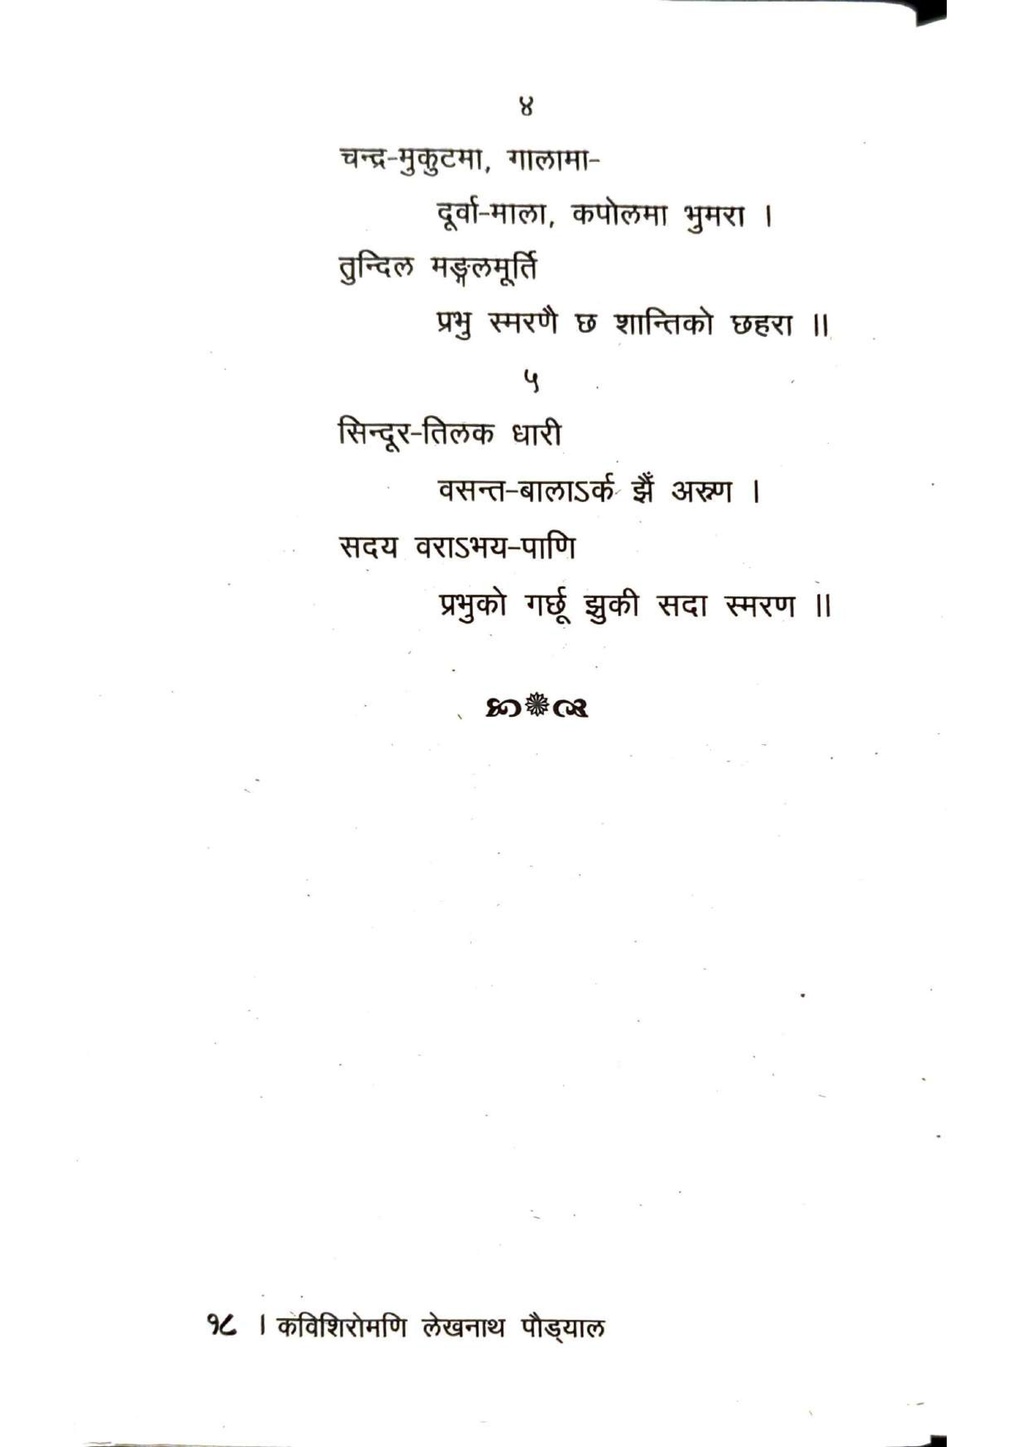 ४
चन्द्र-मुकुटमा, गालामा-
दूर्वा-माला, कपोलमा भुमरा ।
तुन्दिल मङ्गलमूर्ति
प्रभु स्मरणै छ शान्तिको छहरा ॥
५
सिन्दूर-तिलक धारी
वसन्त-बालाऽर्क झैँ अरुण ।
सदय वराऽभय-पाणि
प्रभुको गर्छू झुकी सदा स्मरण ॥
१८ । कविशिरोमणि लेखनाथ पौड्याल